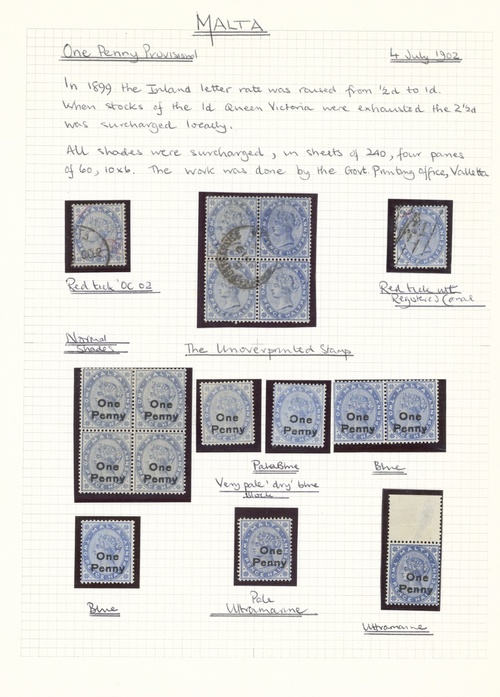 MALTA
One Penny Provisional
4 July 1902
In 1899 the Inland letter rate was raised from ½d to 1d.
When stocks of the 1d Queen Victoria were exhausted the 2½d
was surcharged locally.
All shades were surcharged, in sheets of 240, four panes
of 60, 10x6. The work was done by the Govt. Printing Office, Valletta
Red tick 'OC 02
Red tick
Registered Oval
Normal
Shades
The Unoverprinted Stamp
One
Penny
One
Penny
One
Penny
One
Penny
One
Penny
One
Penny
One
Penny
One
Penny
Pale Blue
Blue
Very pale 'dry' blue
block
One
Penny
One
Penny
One
Penny
Blue
Pale
Ultramarine
Ultramarine